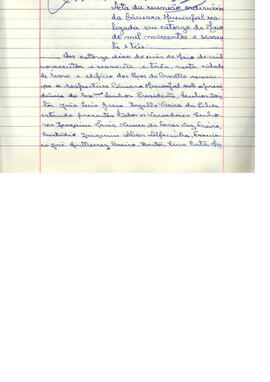 Acta da reunião ordinária
da Câmara Municipal rea-
lizada em catorze de Maio
de mil novecentos e sessen-
ta e três:
Aos catorze dias do mês de Maio de mil
novecentos e sessenta e três, nesta cidade
de Évora e edifício dos Paços do Concelho reuniu-
-se a respectiva Câmara Municipal sob a presi-
dência do Exmo Senhor Presidente, Senhor Dou-
tor João Luís Vieira da Silva
estando presentes todos os Vereadores Senho-
res Joaquim Maria Nunes de Torres Vaz Freire,
Custódio Joaquim
co José Gutierrez Doutor Luís Costa